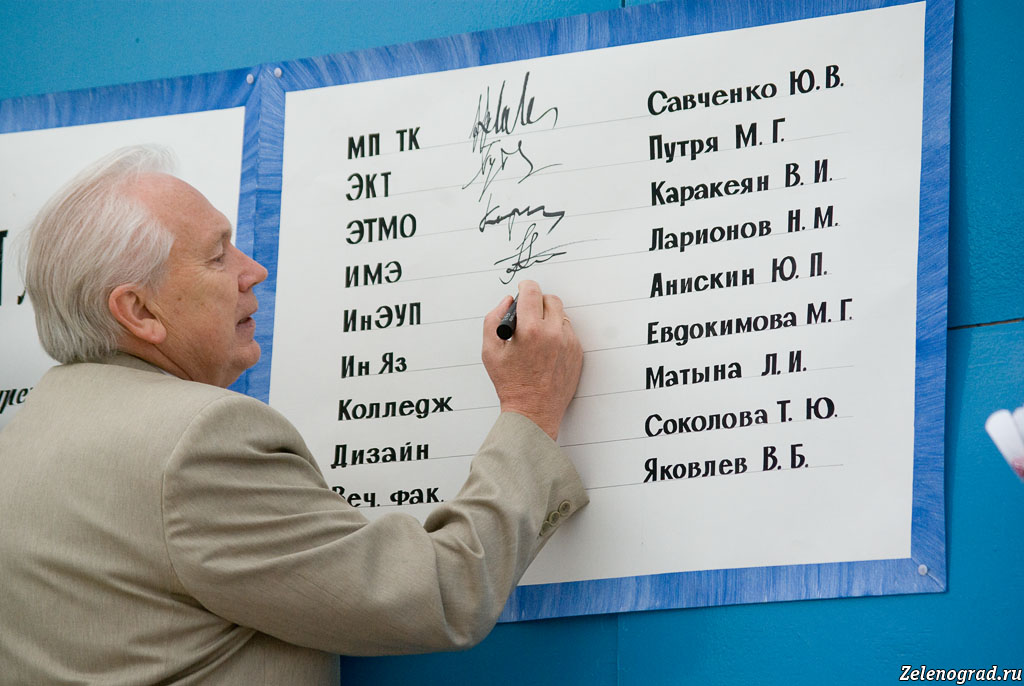 МП ТК Савченко Ю. В.
ЭКТ Путря М. Г.
ЭТМО Каракеян В. И.
ИМЭ Ларионов Н. М.
ИнЭУП Анискин Ю. П.
Ин Яз Евдокимова М. Г.
Колледж Матына Л. И.
Дизайн Соколова Т. Ю.
Веч. фак. Яковлев В. Б.
Zelenograd.ru